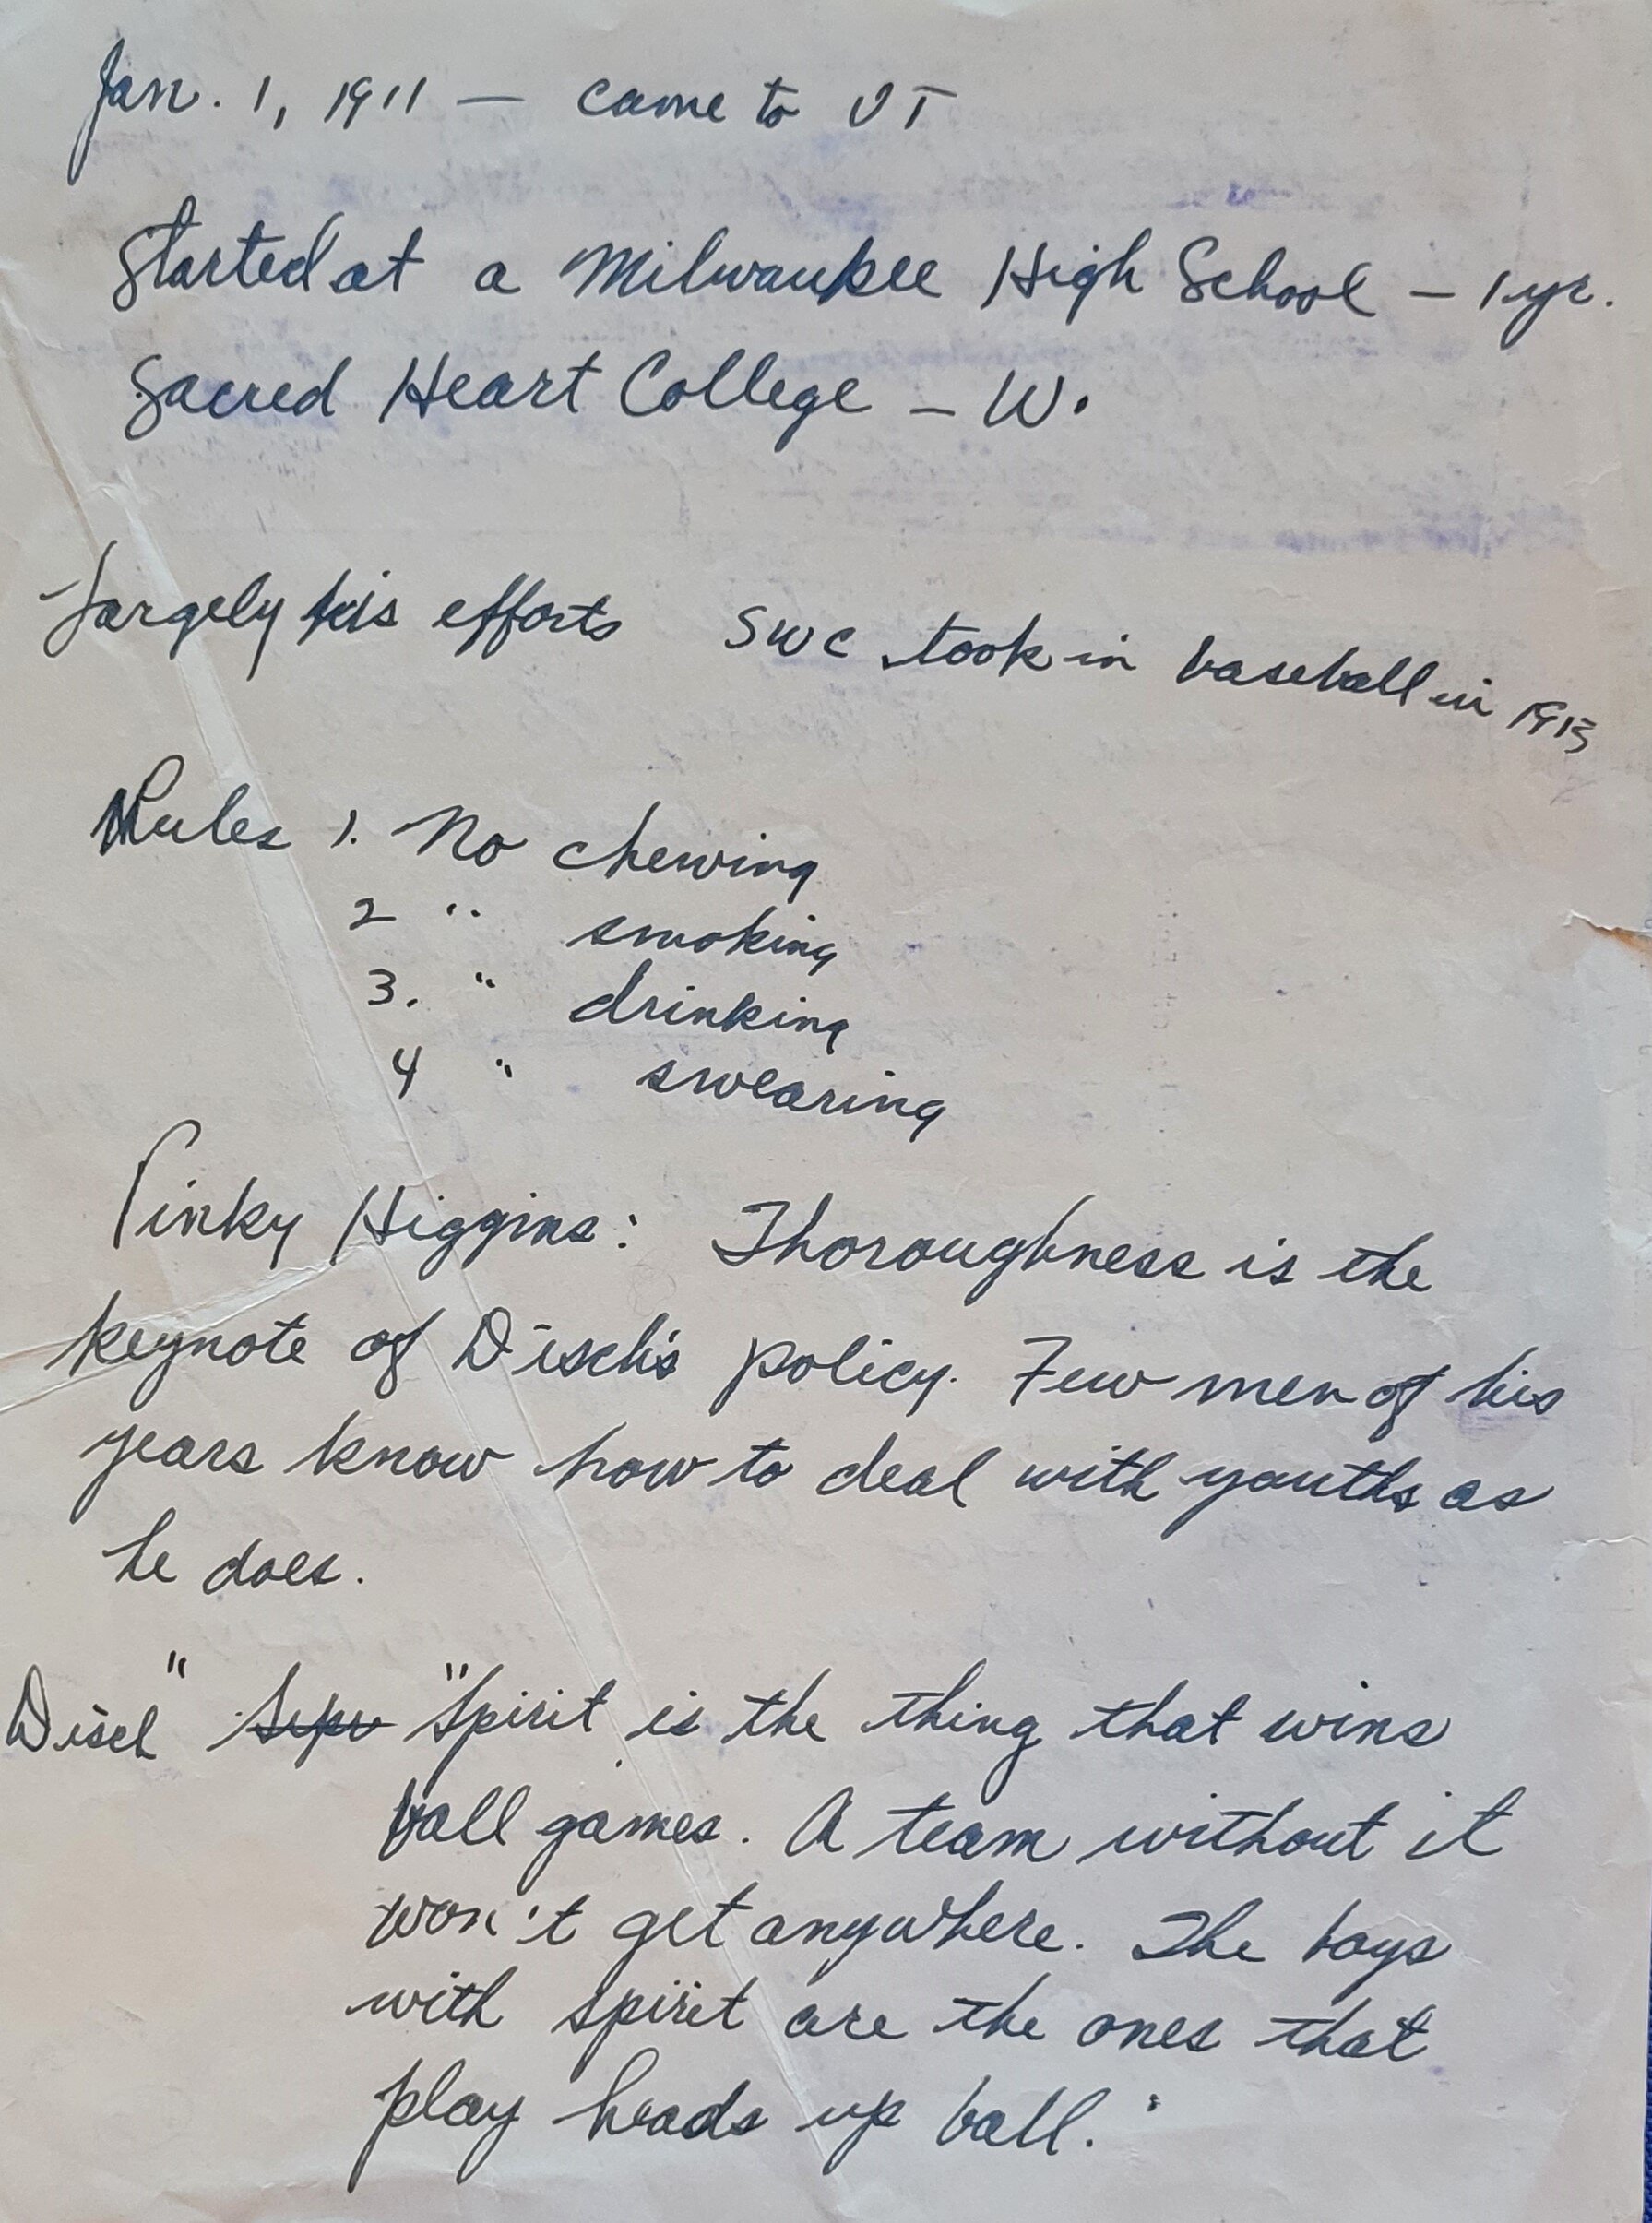 Jan. 1, 1911 — came to UT
Started at a Milwaukee High School — 1 yr.
Sacred Heart College — W.
Largely his efforts SWC took in baseball in 1913
Rules 1. No chewing
2 " smoking
3. " drinking
4 " swearing
Pinky Higgins: Thoroughness is the
keynote of Disch's policy. Few men of his
years know how to deal with youths as
he does.
Disch " "Spirit is the thing that wins
ball games. A team without it
won't get anywhere. The boys
with spirit are the ones that
play heads up ball."